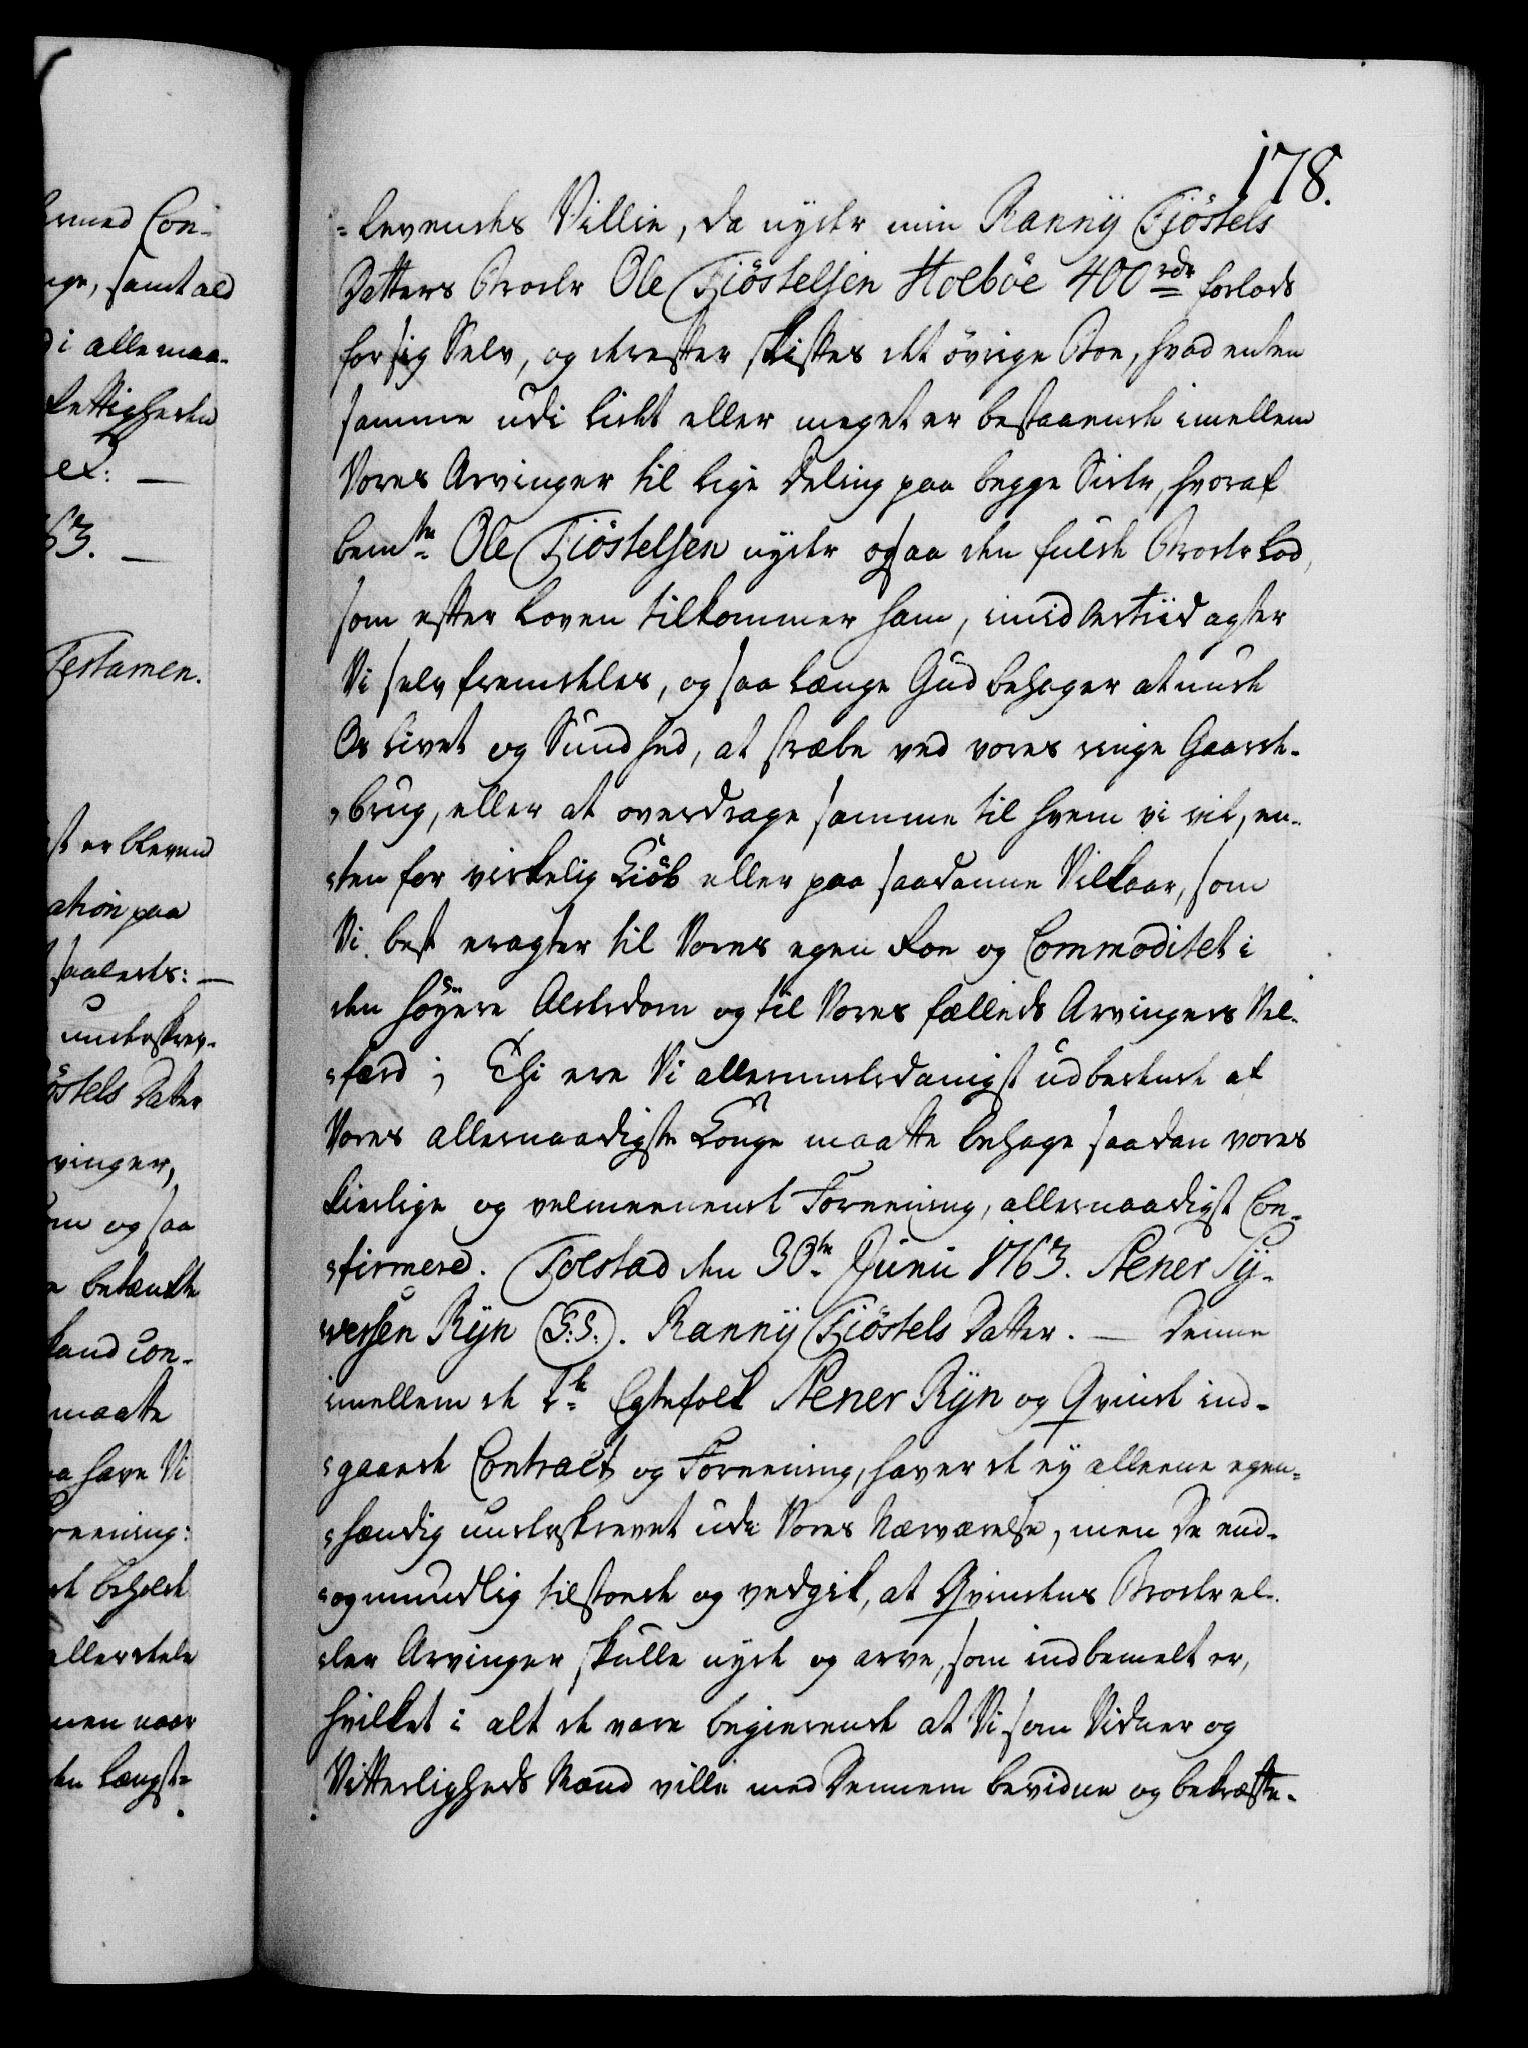 178.
=levendes Villie, da nyder min Ranny Tiöstels
Datters Broder Ole Tiöstelsen Holböe 400 rdr forlods
for sig Selv, og derefter skiftes det övrige Boe, hvad enten
samme udi lidet eller meget er bestaaende imellem
Vores Arvinger til lige Deling paa begge Sider, hvoraf
bemte Ole Tiöstelsen nyder ogsaa den fulde Broder Lod,
som efter Loven tilkommer ham, imidlertiid agter
Vi selv fremdeles, og saa længe Gud behager at unde
Os Livet og Sundhed, at stræbe ved vores ringe Gaards-
=brug, eller at overdrage samme til hvem vi vil, en-
=ten for virkelig Kiöb eller paa saadanne Vilkaar, som
Vi best eragter til Vores egen Roe og Commoditet i
den höyere Alderdom og til Vores fælleds Arvingers Vel-
=færd; Thi ere Vi allerunderdanigst udbedende at
Vores allernaadigste Konge maatte behage saadan vores
kierlige og velmeenende Foreening, allernaadigst Con-
=firmere. Tolstad den 30te Junii 1763. Stener Sy-
=versen Ryn (L:S:). Ranny Tiöstels Datter. — Denne
imellem de 2de Egtefolk Stener Ryn og Qvinde ind-
=gaaede Contract og Foreening, haver de ey alleene egen-
=hændig underskrevet udi Vores Nærværelse, men De end-
=og mundlig tilstoede og vedgik, at Qvindens Broder el-
=ler Arvinger skulle nyde og arve, som indbemelt er,
hvilket i alt de vare begierende at Vi som Vidner og
Vitterligheds Mænd ville med Dennem bevidne og bekræfte-